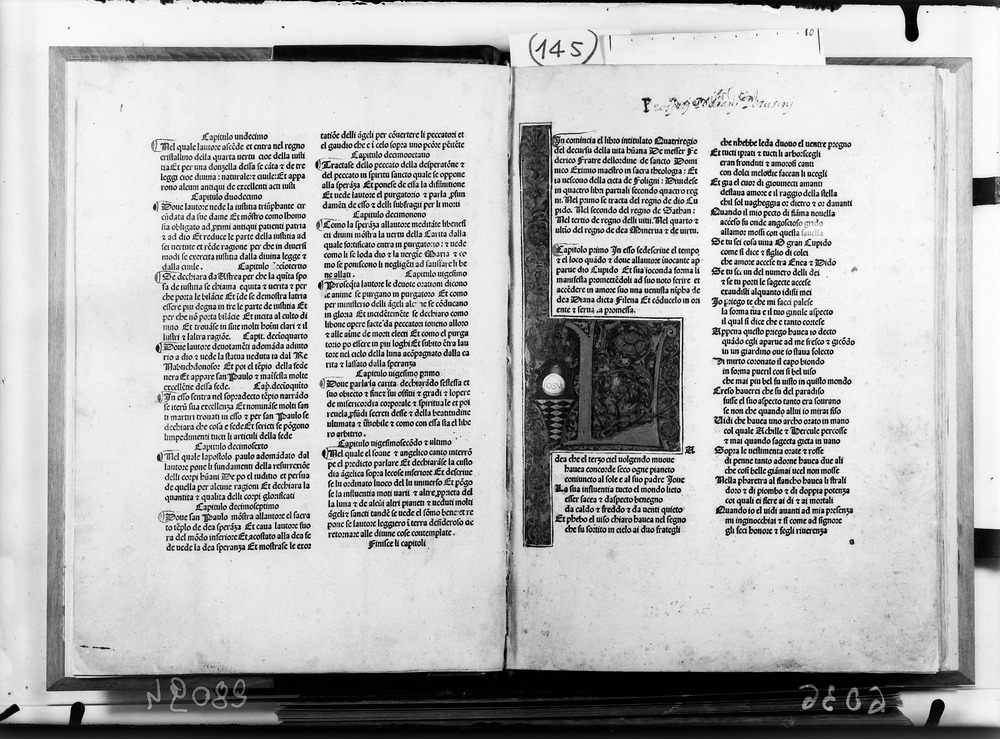 (145)
10
Capitulo undecimo
Nel quale lautore ascēde et entra nel regno
cristallino della quarta uertu cioe della iusti
tia Et per una donzella dessa se cāta ⁊ de tre
leggi cioe diuina: naturale ⁊ ciuile: Et appa
rono alcuni antiqui de excellenti acti iusti
Capitulo duodecimo
Doue lautore uede la iustitia triūphante cir
cūdata da sue dame Et mōstro como lhomo
sia obligato ad ,primi antiqui patienti patria
⁊ ad dio Et reduce le parte della iustitia ad
sei uertute et rēde ragione per che in diuersi
modi se exercita iustitia dalla diuina legge ⁊
dalla ciuile. Capitulo tertiodecimo
Se dechiara da Astrea per che la quīta spo
sa de iustitia se chiama equita ⁊ uerita ⁊ per
che porta le bilācie Et ide se demostra latria
essere piu degna in tre le parte de iustitia Et
per che nō porta bilācie Et incita al culto di
uino Et trouāse in sue molti hoīni darī ⁊ il
lustri ⁊ laltra ragiōe. Capit. decioquarto
Doue lautore deuotamēti adomāda adiuto
rio a dio ⁊ uede la statua neduta da dal Re
Nabuchdonosor Et poi el tēpio della fede
uera Et appare san Paulo ⁊ maīfesta molte
excellētie dessa fede. Cap. decioquito
In esso sentra nel sopradecto tēpio narrādo
se iterū sua excellenza Et nomināse molti san
ti martiri trouati in esso ⁊ per san Paulo se
dechiara che cosa e fede Et sericti se pōgono
limpedimenti tucti li articuli della fede
Capitulo deciosexto
Nel quale lapostolo paulo adomādato dal
lautore pone li fundamenti della resurrectiōe
delli corpi hūani De po el iuditio et persua
de quella per alcune ragioni Et dechiara la
quantita ⁊ qualita delli corpi glorificati
Capitulo decioseptimo
Doue san Paulo mōstra allautore el sacra
to tēplo de dea sperāza Et caua lautore fuo
ra del mōdo inferiore Et, acostato alla dea se
de uede la dea speranza Et mostrase le exor
tatiōe delli āgeli per cōuertere li peccatori et
el gaudio che e ī celo sopra uno pctōre pētēte
Capitulo decimooctauo
Tractase dello peccato della desperatōne ⁊
del peccato in spiritu sancto quale se oppone
alla sperāza Et ponese de essa la diffinitione
Et uede lautore el purgatorio ⁊ parla ,pfun
damēti de esso ⁊ delli suffragii per li morti
Capitulo decimonono
Como la sperāza allautore meditāte libenesi
cii diuini mōstra la uertu della Carita dalla
quale fortificato entra in purgatorio: ⁊ uede
como li se loda dio ⁊ la uergie Maria ⁊ co
mo se puniscono li negligēti ad satisfare li be
ne allati. Capitulo uigesimo
Prosequita lautore le deuote orationi dicono
le anime se purgano in purgatorio Et como
per ministerio delli āgeli alcune se cōducano
in gloria Et incidētemēte se dechiaro como
libone opere facte da peccatori ioueno alloro
⁊ alle aīme de morti electi Et como el purga
torio po essere in piu loghi Et subito ētra lau
tore nel cielo della luna acōpagnato dalla ca
rita ⁊ lassato dalla speranza
Capitulo uigesimo primo
Doue parla la carita dechiarādo sestessa et
suo obiecto ⁊ fine ⁊ sui offitii ⁊ gradi ⁊ lopere
de misericordia corporale ⁊ spirituale et poi
reuela ,pfūdi secreti desse ⁊ della beatitudine
ultimata ⁊ īmobile ⁊ como con essa sta el libe
ro arbitrio.
Capitulo uigesimosecōdo ⁊ ultimo
Nel quale el soaue ⁊ angelico canto interrō
pe el predicto parlare Et dechiarāse la custo
dia āgelica sopra lecose inferiore Et descriue
se lu ordinato luoco del lu uniuerso Et pōgo
se la influentia moti uarii ⁊ altre ,pprieta del
la luna ⁊ de alcūi altri pianeti ⁊ ueduti molti
āgeli ⁊ sancti tandē se uede el sōmo bene et re
pone se lautore leggiero ī terra desideroso de
retornare alle diuine cose contemplate.
Finisce li capitoli
In comincia el libro intitulato Quatriregio
del decursu della uita hūana De messer Fe
derico Fratre dellordine de sancto Domi
nico Eximio maestro in sacra theologia: Et
ia uescouo della cicta de Foligni: Diuidese
in quatro libri partiali secondo quatro reg
ni. Nel primo se tracta del regno de dio Cu
pido. Nel secondo del regno de Sathan:
Nel tertio de regno delli uitii. Nel quarto ⁊
ultio del regno de dea Minerua ⁊ de uirtu.
Capitolo primo In esso sedescriue el tempo
⁊ el loco quādo ⁊ doue allautore iuocante ap
parue dio Cupido Et sua ioconda forma li
manifesta promectēdoli ad suo uoto ferire et
accēdere in amore suo una uenusta nīpha de
dea Diana dicta Filena Et cōducelo in ori
ente ⁊ serua la promessa.
A
dea che el terzo ciel uolgendo muoue
bauea concorde seco ogne pianeto
coniuncto al sole e al suo padre Joue
La sua influentia tucto el mondo lieto
esser facea ⁊ daspecto benegno
da caldo ⁊ freddo ⁊ da uenti quieto
Et phebo el uiso chiaro hauea nel segno
che fu sortito in cielo ai duo frategli
che nhebbe leda duouo el uentre pregno
Et tucti iprati ⁊ tucti li arboscegli
eran fronduti ⁊ amorosi canti
con dolci melodie faccan li ucegli
Et gia el cuor de giouineti amanti
destaua amore ⁊ il raggio della stella
chil sol uagheggia or dietro ⁊ or dauanti
Quando il mio pecto di fiāma nouella
acceso fu onde angoscioso grido
allamor mossi con questa fauella
Se tu sei cosa uiua O gran Cupido
come si dice ⁊ figlio di colei
che amore accese tra Enea ⁊ Dido
Se tu sei un del numero delli dei
⁊ se tu porti le sagecte accese
exaudisti alquanto idisii mei
Io priego te che mi facci palese
la forma tua e il tuo gintile aspecto
il qual si dice che e tanto cortese
Appena questo priego hauea io decto
quādo egli apparue ad me fresco ⁊ giocōdo
in un giardino oue io staua solecto
Di mirto coronato il capo biondo
in forma pueril con si bel uiso
che mai piu bel fu uisto in questo mondo
Creso hauerei che su del paradiso
fusse il suo aspecto tanto era sourano
se non che quando allui io mirai fiso
Uidi che hauea uno archo orato in mano
col quale Achille ⁊ Hercule percosse
⁊ mai quando sagecta giecta in uano
Sopra le uestimenta orate ⁊ rosse
di penne tanto adorne hauea due ali
che cosi belle giāmai ucel non mosse
Nella pharetra al fiancho hauea li strali
doro ⁊ di piombo ⁊ di doppia potenza
coi quali ei fiere ai di ⁊ ai mortali
Quando io el uidi auanti ad mia presenza
mi inginocchiai ⁊ si come ad signore
gli feci honore ⁊ fegli riuerenza
a
28094
6036